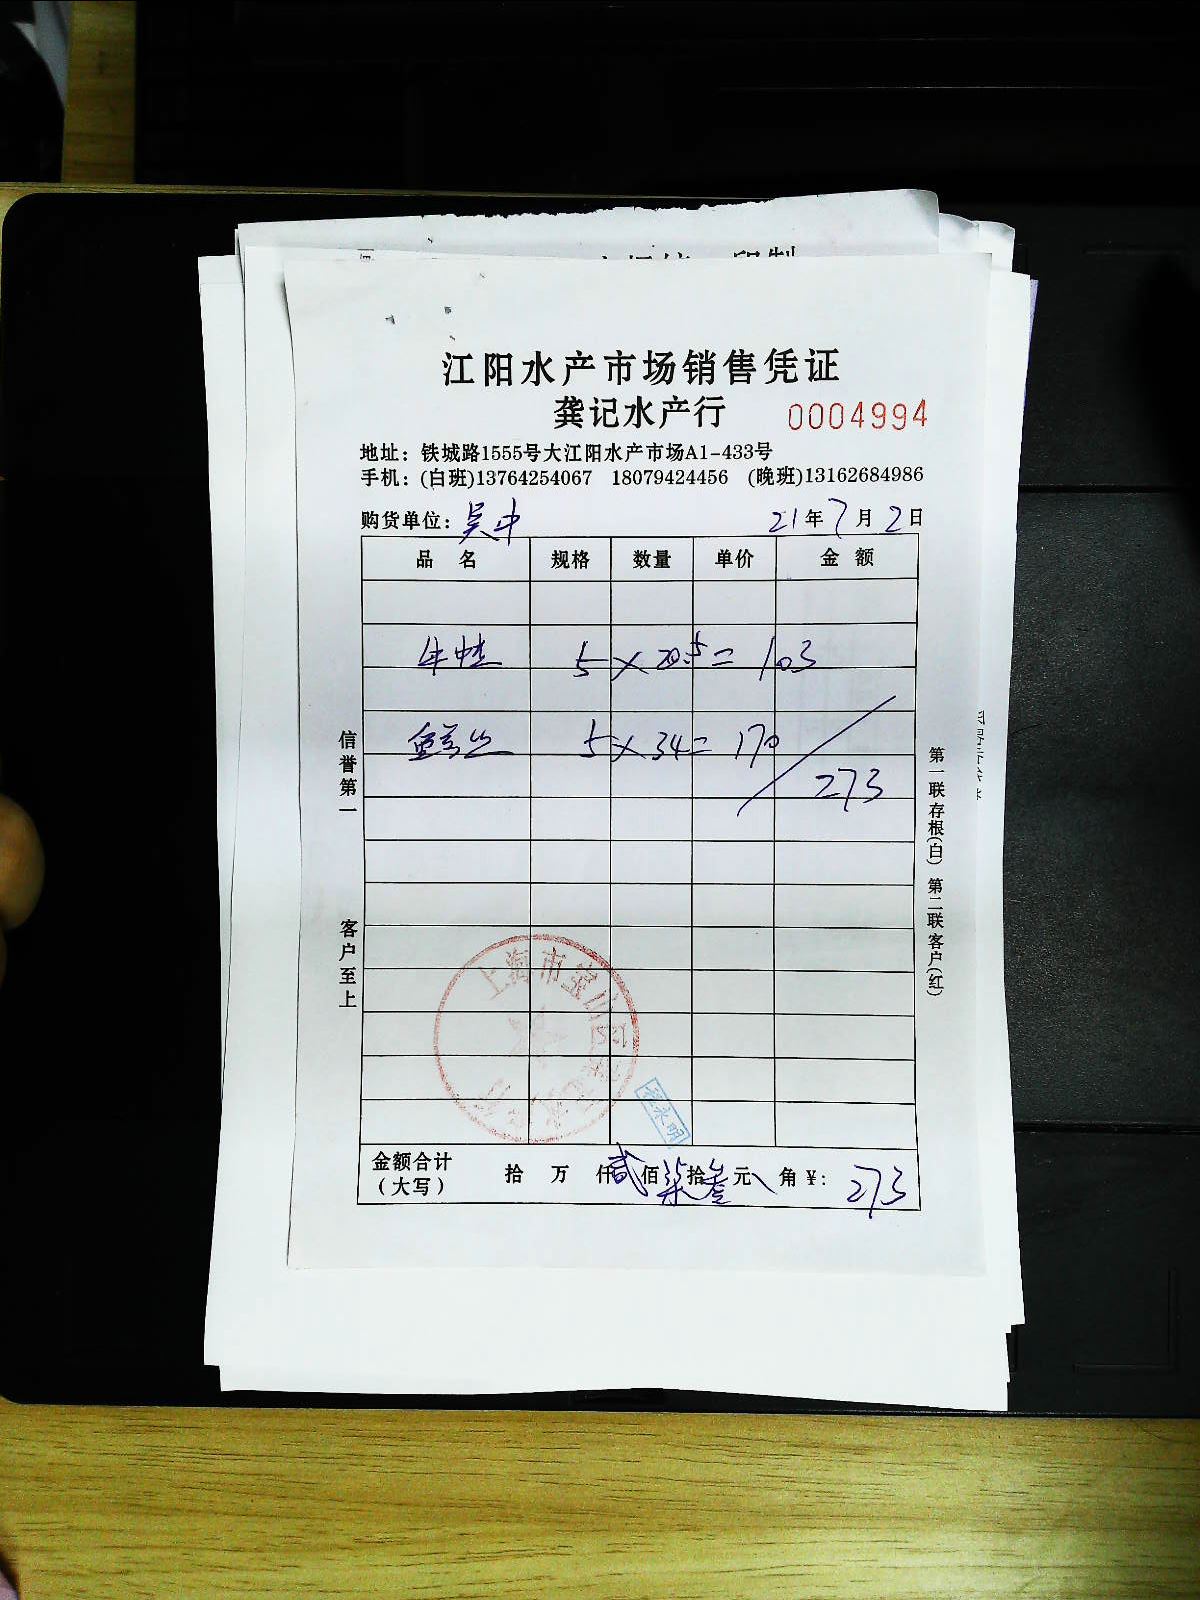 江阳水产市场销售凭证
龚记水产行 0004994
地址：铁城路1555号大江阳水产市场A1-433号
手机：(白班)13764254067 18079424456 (晚班)13162684986
购货单位：吴中 21年7月2日
品 名 规格 数量 单价 金 额
5×20.5=103
5×34=170
273
信誉第一 客户至上
第一联存根(白) 第二联客户(红)
上海市宝山区
金额合计（大写） 拾 万 仟贰佰柒拾叁元 角￥：273